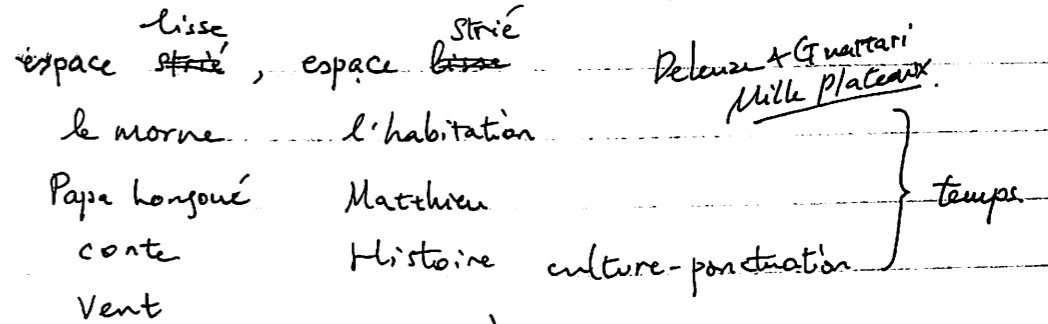 lisse strié
espace strié, espace lisse Deleuze & Guattari
Mille Plateaux.
le morne l'habitation
Papa Longoué Matthieu temps
conte Histoire culture-ponctuation
Vent